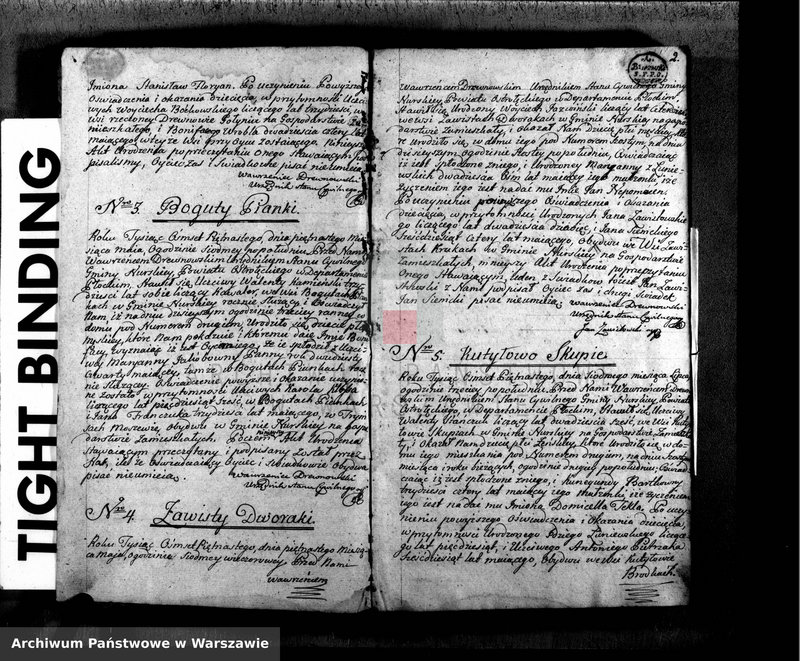 TIGHT BINDING
Imiona Stanisław Floryan. Po uczynieniu Powyższego
Oświadczenia i okazania Dziecięcia, w przytomności Ucci
wych Woyciecha Boćkowskiego liczącego lat trzydzieści, we
wsi rzeczoney Drewnowie Gołynie na Gospodarstwie Za
mieszkałego, i Bonifacego Wróbla dwadzieścia cztery lat
maiącego, w teyże wsi przy Oycu zostaiącego. Ninieyszy
Akt Urodzenia po przeczytaniu Onego Stawaiącym pod
pisaliśmy, Oyciec Zaś i Świadkowie pisać nieumieią.
Wawrzeniec Drewnowski
Urzędnik Stanu Cywilnego
Nro 3. Boguty Pianki.
Roku Tysiąc Ośmset Piętnastego, dnia piętnastego Mie
siąca Maia, Ogodzinie Siódmey po południu Przed Nami
Wawrzeńcem Drewnowskim Urzędnikiem Stanu Cywilnego
Gminy Nurskiey, Powiatu Ostrołęckiego w Departamencie
Płockim, Stawił się Uczciwy Walenty Kamieński trzy
dzieści lat sobie liczący we wsi Bogutach Pian
kach w Gminie Nurskiey rocznie służący, i Oświadczył
Nam, iż na dniu dzisieyszym ogodzinie trzeciey ranney w
domu pod Numerem drugim, Urodziło się Dziecię płci
męskiey, które Nam pokazuie i któremu daie Imię Boni
facy, wyznaiąc iż iest Oycem iego, że ie spłodził z Uczci
wey Maryanny Jakubowny Panny rok dwudziesty
czwarty maiącey, tamże w Bogutach Piankach rocz
nie służącey. Oświadczenie powyższe i okazanie uczynio
ne zostało w przytomności Uczciwych Karola
liczącego lat pięćdziesiąt sześć, w Bogutach Piankach
i Jana Franczuka trzydzieści lat maiącego, w Trym
bach Moszewie, obydwu w Gminie Nurskiey na Gospo
darstwie Zamieszkałych. Poczem Akt Urodzenia
Stawaiącym przeczytany i podpisany został przez
Nas, iż że Oświadczaiący Oyciec i Świadkowie Obydwa
pisać nieumieią.
Wawrzeniec Drewnowski
Urzędnik Stanu Cywilnego
Nro 4. Zawisty Dworaki.
Roku Tysiąc Ośmset Piętnastego, dnia piętnastego Miesią
ca Maia, ogodzinie Siódmey wieczorowey Przed Nami
Wawrzeńcem
2
Wawrzeńcem Drewnowskim Urzędnikiem Stanu Cywilnego Gminy
Nurskiey, Powiatu Ostrołęckiego w Departamencie Płockim,
Stawił się Urodzony Woyciech Jarzeiński liczący lat
we wsi Zawistach Dworakach w Gminie Nurskiey na gospo
darstwie Zamieszkały, i okazał Nam Dziecię płci męskiey, któ
re urodziło się w domu iego pod Numerem szóstym, na dniu
dzisieyszym ogodzinie szóstey po południu, Oświadczaiąc
iż iest spłodzone z niego, i Urodzoney Maryanny z Łuniew
skich dwadzieścia ośm lat maiącey iego małżonki, i że
życzeniem iego iest nadać mu Imię Jan Nepomucen.
Po uczynieniu powyższego Oświadczenia i okazania
Dziecięcia, w przytomności Urodzonych Jana Zawistowskie
go liczącego lat dwadzieścia dziewięć, i Jana Sienickiego
Sześćdziesiąt cztery lat maiącego, Obydwu we Wsi Zawi
stach Kreftach w Gminie Nurskiey na Gospodarstwie
Zamieszkałych, Ninieyszy Akt Urodzenia po przeczytaniu
Onego Stawaiącym, Jeden z Świadków to iest Jan Zawi
stowski z Nami podpisał Oyciec Zaś i drugi Świadek
Jan Sienicki pisać nieumieią.
Wawrzeniec Drewnowski
Urzędnik Stanu Cywilnego
Jan Zawistowski
Nro 5. Kutyłowo Skupie
Roku Tysiąc Ośmset Piętnastego, dnia Siódmego miesiąca Lipca,
ogodzinie trzeciey po południu, Przed Nami Wawrzeńcem Drew
nowskim Urzędnikiem Stanu Cywilnego Gminy Nurskiey, Powiatu
Ostrołęckiego, w Departamencie Płockim, Stawił się Uczciwy
Walenty Francuz liczący lat dwadzieścia sześć, we Wsi Kuty
łowie Skupiach w Gminie Nurskiey na Gospodarstwie Zamieszka
ły, i okazał Nam Dziecię płci żeńskiey, które urodziło się w do
mu iego mieszkania pod Numerem drugim, na dniu szóstym
miesiąca i roku bieżących, ogodzinie drugiey po południu, Oświad
czaiąc iż iest spłodzone z niego, i Kunegundy Bartkowny
trzydzieści cztery lat maiącey iego małżonki, i że życzeniem
iego iest nadać mu Imiona Domicella Tekla. Po uczy
nieniu powyższego oświadczenia i okazania dziecięcia,
w przytomności Urodzonego Łuniewskiego liczące
go lat pięćdziesiąt, i Uczciwego Antoniego Pietrzaka
Sześćdziesiąt lat maiącego, obydwu we Wsi Kutyłowie
Brodkach.
Archiwum Państwowe w Warszawie